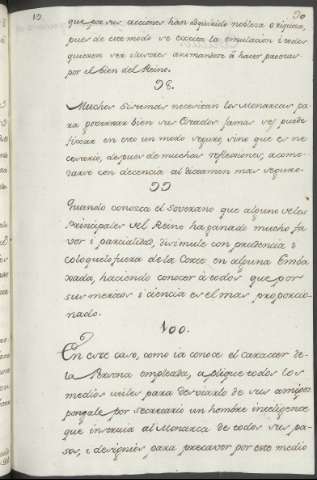 19. 30
que por sus acciones han adquirido nobleza o riqueza,
pues de este modo se excita la emulacion i todos
quieren ser ilustres animandose à hacer proezas
por el bien del Reino.
98.
Muchos sistemas necesitan los Monarcas pa
ra governar bien sus Estados Jamas se puede
fixar en esto un modo seguro, sino que es ne
cesario, despues de muchas reflexiones, acomo-
darse con decencia al dictamen mas seguro.
99
Quando conozca el Soverano que alguno de los
Principales del Reino ha ganado mucho fa
vor i parcialidad, disimule con prudencia i
coloquelo fuera de la Corte en alguna Emba
xada, haciendo conocer à todos que por
sus meritos i ciencia es el mas proporcio-
nado.
100.
En este caso, como ia conoce el caracter de
la Persona empleada, aplique todos los
medios utiles para desviarlo de sus amigos
pongale por secretario un hombre inteligente
que instruia al Monarca de todos sus pa-
sos, i designios para precaver por este medio